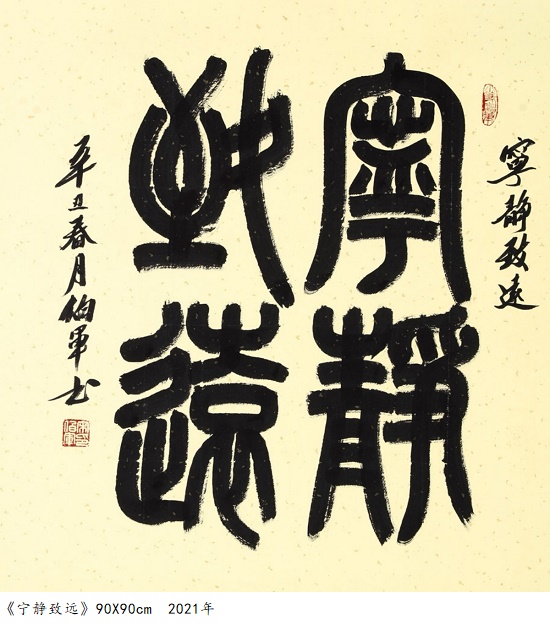 寧靜致遠
寧靜
致遠
辛丑春月伯軍书
《宁静致远》90X90cm 2021年